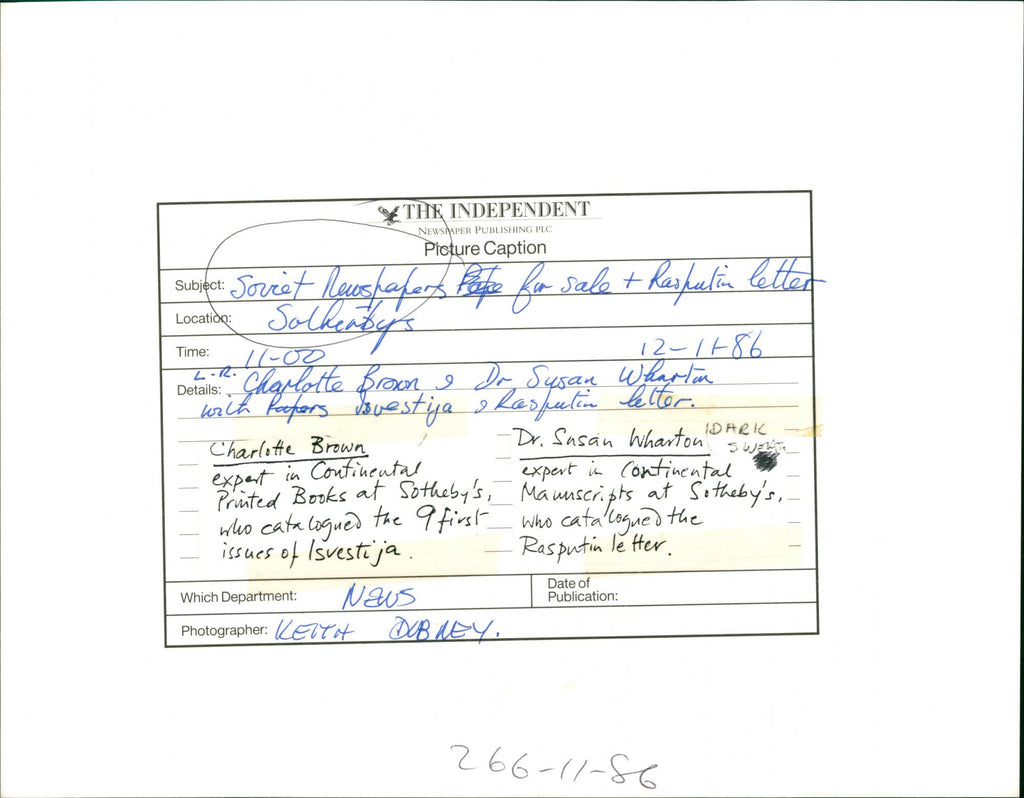 THE INDEPENDENT
NEWSPAPER PUBLISHING PLC
Picture Caption
Subject: Soviet Newspapers for sale + Rasputin letter
Location: Sothenbys
Time: 11-00 12-11-86
L-R.
Details: Charlotte Brown & Dr Susan Wharton
with Papers Isvestija & Rasputin letter.
Charlotte Brown
expert in Continental
Printed Books at Sotheby's,
who catalogued the 9 first
issues of Isvestija.
Dr. Susan Wharton
expert in Continental
Manuscripts at Sotheby's,
who catalogued the
Rasputin letter.
DARK
Which Department: NEWS
Date of
Publication:
Photographer: KEITH DOBNEY.
266-11-86